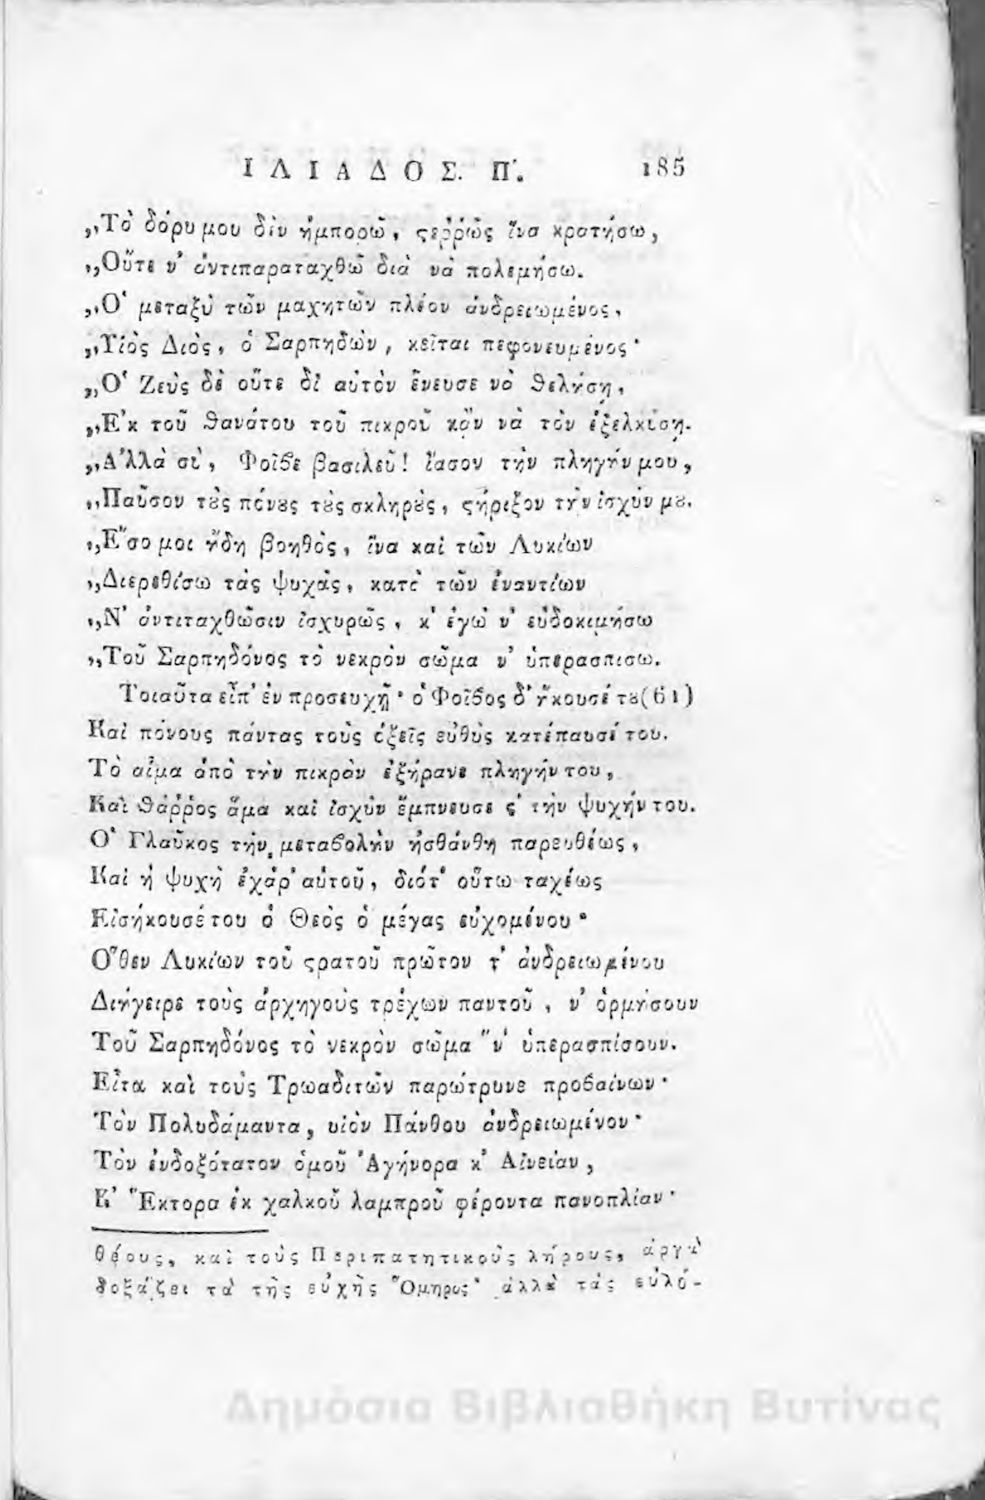 ΙΛΙΑΔΟΣ. Π'. 185
„Τὸ δόρυ μου δὲν ἠμπορῶ, ςερρῶς ἵνα κρατήσω,
„Οὔτε ν' ἀντιπαραταχθῶ διὰ νὰ πολεμήσω.
„Ὁ μεταξὺ τῶν μαχητῶν πλέον ἀνδρειωμένος,
„Υἱὸς Διὸς, ὁ Σαρπηδὼν, κεῖται πεφονευμένος·
„Ὁ Ζεὺς δὲ οὔτε δι' αὐτὸν ἔνευσε νὰ θελήσῃ,
„Ἐκ τοῦ θανάτου τοῦ πικροῦ κᾂν νὰ τὸν ἐξελκύσῃ.
„Ἀλλὰ σὺ, Φοῖβε βασιλεῦ! ἴασον τὴν πληγήν μου,
„Παῦσον τὰς πόνȣς τȣς σκληρȣς, ςήριξον τὴν ἰσχύν μȣ.
„Ἔσο μοι ἤδη βοηθὸς, ἵνα καὶ τῶν Λυκίων
„Διερεθίσω τὰς ψυχὰς, κατὰ τῶν ἐναντίων
„Ν' ἀντιταχθῶσιν ἰσχυρῶς, κ' ἐγὼ ν' εὐδοκιμήσω
„Τοῦ Σαρπηδόνος τὸ νεκρὸν σῶμα ν' ὑπερασπίσω.
Τοιαῦτα εἶπ' ἐν προσευχῇ· ὁ Φοῖβος δ' ἤκουσέ τȣ(61)
Καὶ πόνους πάντας τοὺς ἑξεῖς εὐθὺς κατέπαυσέ του.
Τὸ αἷμα ἀπὸ τὴν πικρὰν ἐξήρανε πληγήν του,
Καὶ θάρρος ἅμα καὶ ἰσχὺν ἔμπνευσε ς' τὴν ψυχήν του.
Ὁ Γλαῦκος τὴν μεταβολὴν ᾐσθάνθη παρευθέως,
Καὶ ἡ ψυχὴ ἐχάρ' αὐτοῦ, διότ' οὕτω ταχέως
Εἰσήκουσέ του ὁ Θεὸς ὁ μέγας εὐχομένου·
Ὅθεν Λυκίων τοῦ ςρατοῦ πρῶτον τ' ἀνδρειωμένου
Διήγειρε τοὺς ἀρχηγοὺς τρέχων παντοῦ, ν' ὁρμήσουν
Τοῦ Σαρπηδόνος τὸ νεκρὸν σῶμα ν' ὑπερασπίσουν.
Εἶτα καὶ τοὺς Τρωαδιτῶν παρώτρυνε προβαίνων·
Τὸν Πολυδάμαντα, υἱὸν Πάνθου ἀνδρειωμένον·
Τὸν ἐνδοξότατον ὁμοῦ Ἀγήνορα κ' Αἰνείαν,
Κ' Ἕκτορα ἐκ χαλκοῦ λαμπροῦ φέροντα πανοπλίαν·
θέους, καὶ τοὺς Περιπατητικοὺς λήρους, ἀργὰ
δοξάζει τὰ τῆς εὐχῆς Ὅμηρος· ἀλλὰ τὰς εὐλό-
Δημόσια Βιβλιοθήκη Βυτίνας